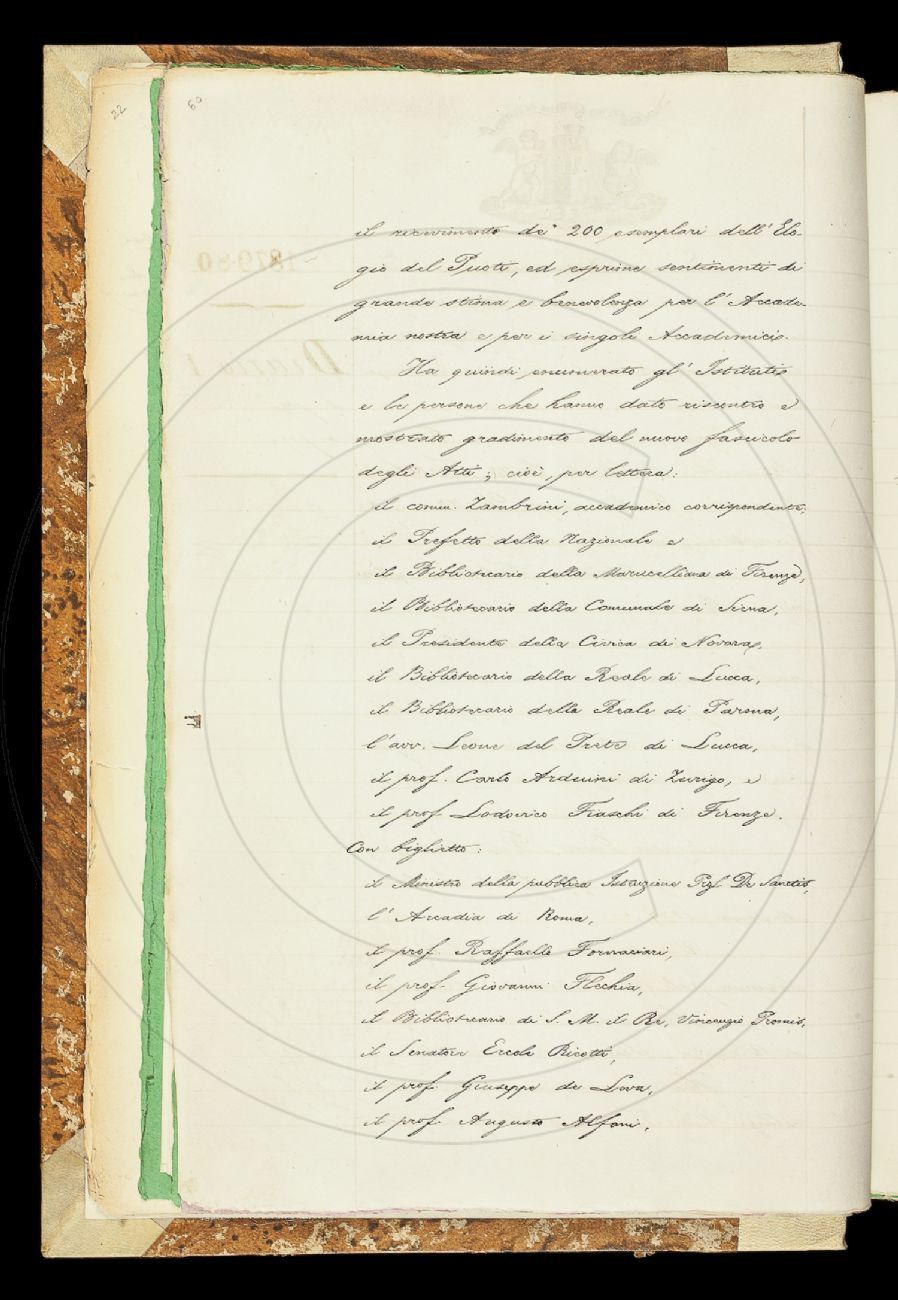 22
60
il ricevimento de' 200 esemplari dell' Elo-
gio del Puoti, ed esprime sentimenti di
grande stima e benevolenza per l' Accade-
mia nostra e per i singoli Accademici.
Ha quindi enumerato gl' Istituti
e le persone che hanno dato riscontro e
mostrato gradimento del nuovo fascicolo
degli Atti; cioè, per lettera:
il comm. Zambrini, accademico corrispondente,
il Prefetto della Nazionale e
il Bibliotecario della Marucelliana di Firenze,
il Bibliotecario della Comunale di Siena,
il Presidente della Civica di Novara,
il Bibliotecario della Reale di Lucca,
il Bibliotecario della Reale di Parma,
l' avv. Leone del Prete di Lucca,
il prof. Carlo Arduini di Zurigo, e
il prof Lodovico Fiaschi di Firenze.
Con biglietto:
il Ministro della pubblica Istruzione Prof. De Sanctis,
l' Arcadia di Roma,
il prof. Raffaello Fornaciari,
il prof. Giovanni Flechia,
il Bibliotecario di S. M. il Re, Vincenzo Promis,
il Senatore Ercole Ricotti,
il prof. Giuseppe de Leva,
il prof. Augusto Alfani,